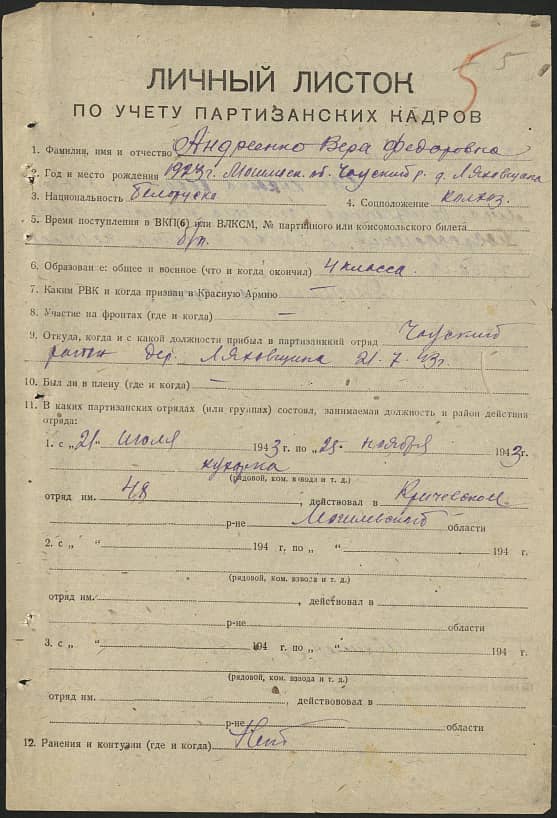 5 5
ЛИЧНЫЙ ЛИСТОК
ПО УЧЕТУ ПАРТИЗАНСКИХ КАДРОВ
1. Фамилия, имя и отчество Андреенко Вера Федоровна
2. Год и место рождения 1923 г. Могилевск. об. Чаусский р. д. Ляховщина
3. Национальность Белоруска 4. Соцположение колхоз.
5. Время поступления в ВКП(б) или ВЛКСМ, № партийного или комсомольского билета
б/п.
6. Образован е: общее и военное (что и когда окончил) 4 класса.
7. Каким РВК и когда призван в Красную Армию —
8. Участие на фронтах (где и когда) —
9. Откуда, когда и с какой должности прибыл в партизанский отряд Чаусский
район дер. Ляховщина 21-7-43г.
10. Был ли в плену (где и когда) —
11. В каких партизанских отрядах (или группах) состоял, занимаемая должность и район действия
отряда:
1. с „21" июля 1943 г. по „25" ноября 1943 г.
(рядовой, ком. взвода и т. д.)
отряд им. 48, действовал в Кричевском
р-не Могилевского области
2. с „ " 194 г. по „ " 194 г.
(рядовой, ком. взвода и т. д.)
отряд им., действовал в
р-не области
3. с „ " 194 г. по „ " 194 г.
(рядовой, ком. взвода и т. д.)
отряд им., действововал в
р-не области
12. Ранения и контузии (где и когда) Нет